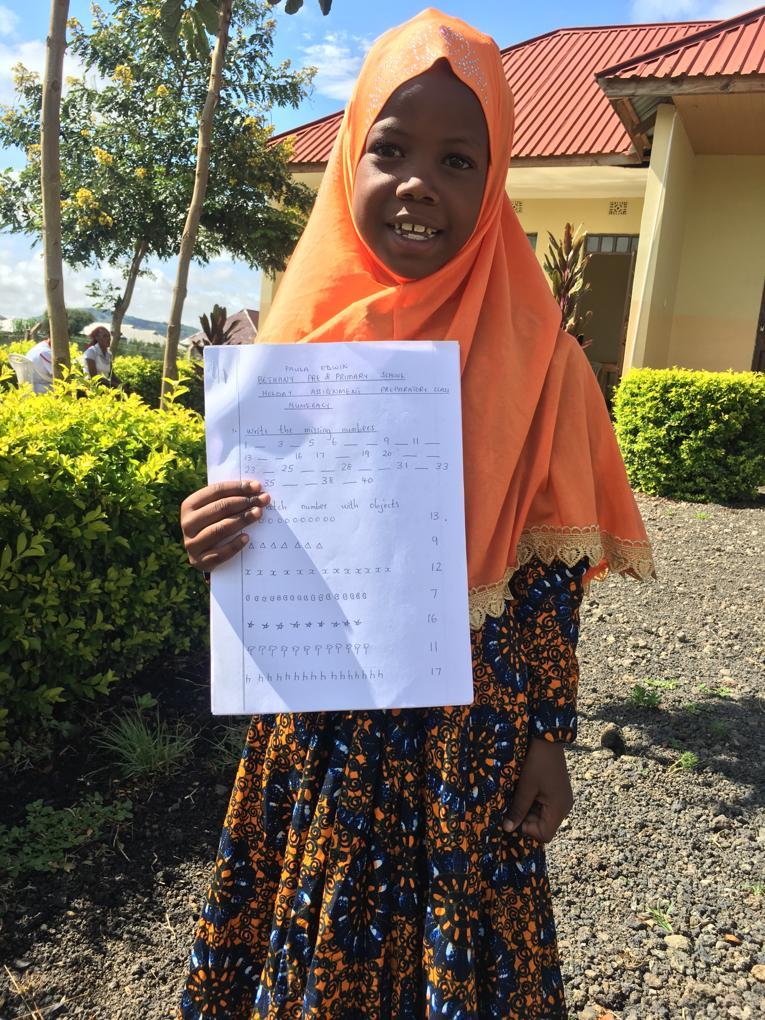 PAULA EDWIN
BETHANY PRE & PRIMARY SCHOOL
HOLIDAY ASSIGNMENT PREPARATORY CLASS
NUMERACY
1. Write the missing numbers
1 __ 3 __ 5 6 __ __ 9 __ 11 __
13 __ __ 16 17 __ __ 19 20 __ __
23 __ 25 __ __ 28 __ __ 31 __ 33
__ 35 __ __ 38 __ 40
match number with objects
13.
9
12
7
16
11
17